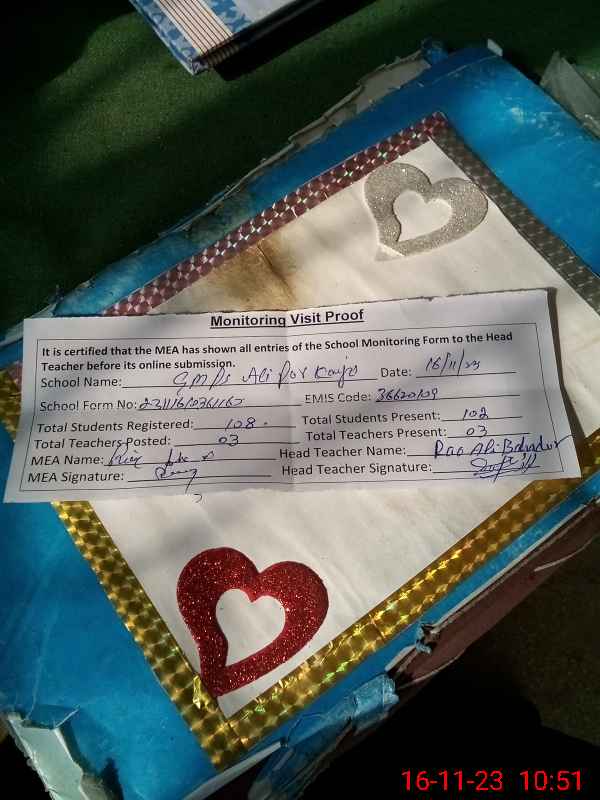 Monitoring Visit Proof
It is certified that the MEA has shown all entries of the School Monitoring Form to the Head
Teacher before its online submission.
School Name: GMPS Ali Pur Date: 16/11/23
School Form No: EMIS Code: 36620109
Total Students Registered: 108 Total Students Present: 102
Total Teachers Posted: 03 Total Teachers Present: 03
MEA Name: Head Teacher Name: Rao Ali Bahadur
MEA Signature: Head Teacher Signature:
16-11-23 10:51